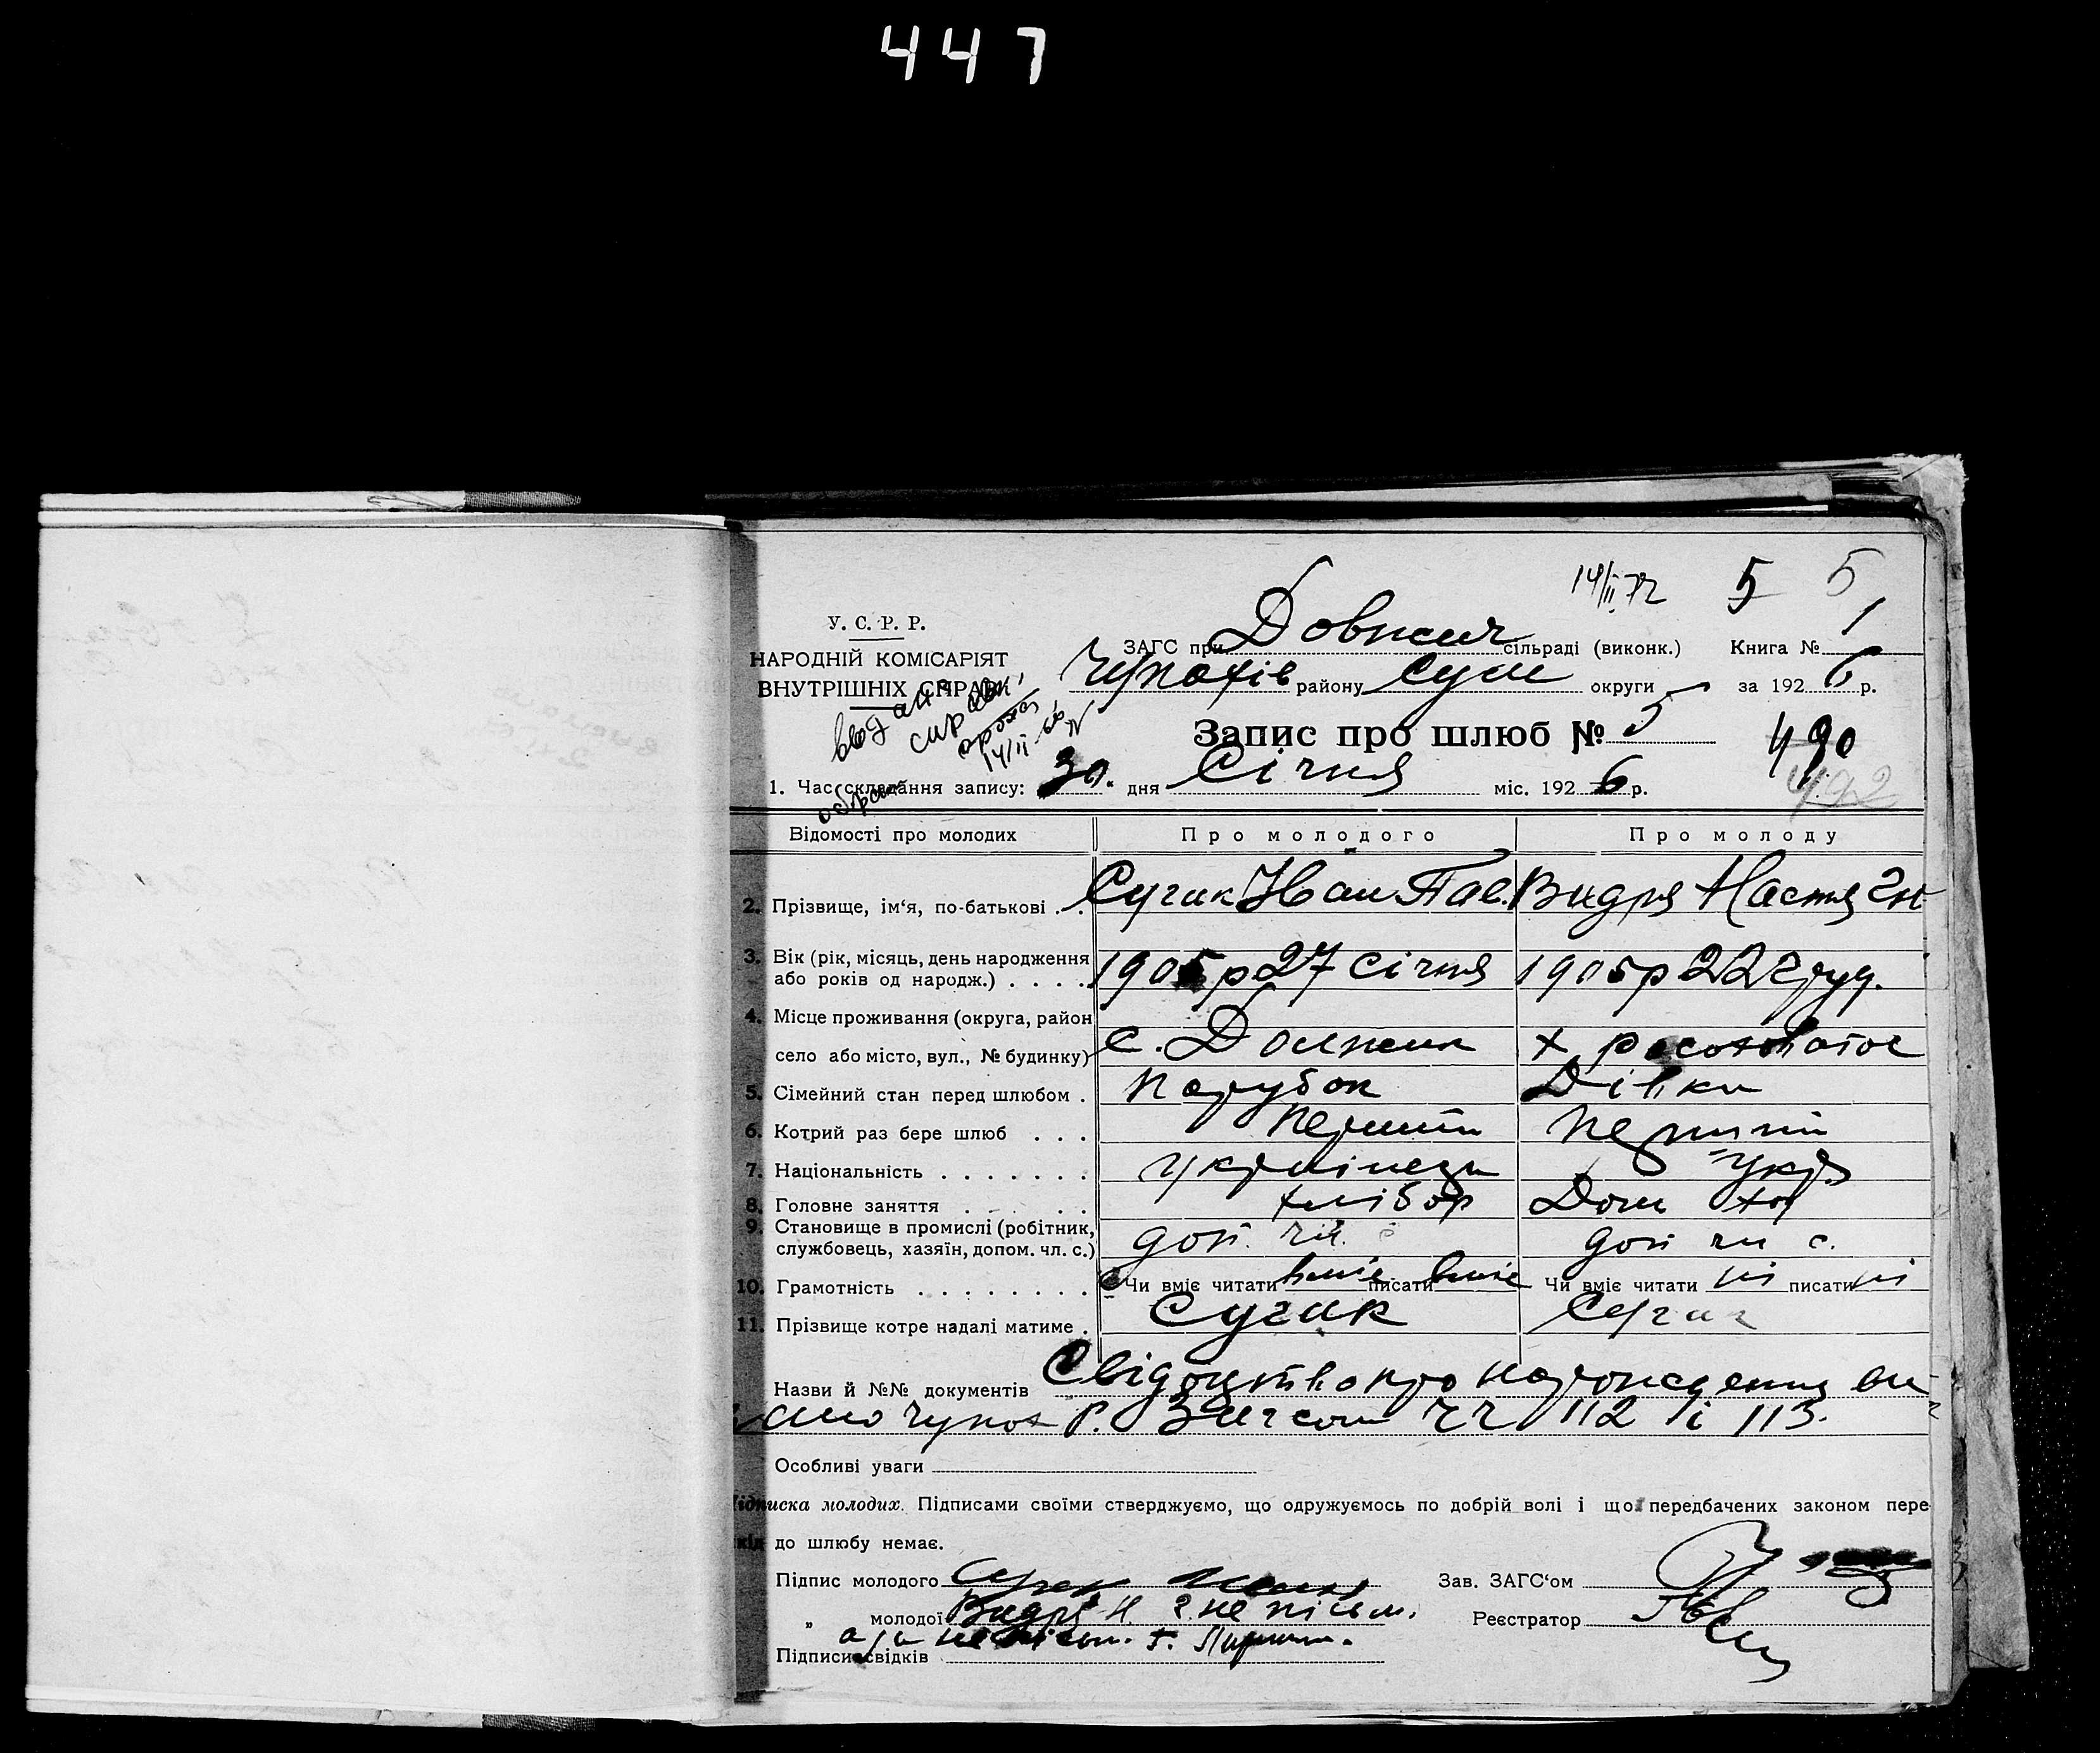 447
14/II 72 5 5
У. С. Р. Р.
НАРОДНІЙ КОМІСАРІЯТ
ВНУТРІШНІХ СПРАВ
ЗАГС при Довжич сільраді (виконк.) Книга № 1
Чупахів району Сум округи за 1926 р.
Запис про шлюб № 5
490
492
1. Час складання запису: „30“ дня Січня міс. 1926 р.
Відомості про молодих Про молодого Про молоду
2. Прізвище, ім‘я, по-батькові . . Сугак Иван Пав. Видря Настя Гн
3. Вік (рік, місяць, день народження
або років од народж.) . . . . 1905р 27 січня 1905р 22 груд.
4. Місце проживання (округа, район
село або місто, вул., № будинку) с. Должик х.
5. Сімейний стан перед шлюбом . Парубок Дівка
6. Котрий раз бере шлюб . . . перший перший
7. Національність . . . . . . . українець укр
8. Головне заняття . . . . . хлібор Дом хоз
9. Становище в промислі (робітник,
службовець, хазяїн, допом. чл. с.) доп. чл. с доп чл с.
10. Грамотність . . . . . . . . Чи вміє читати вміє писати вміє Чи вміє читати ні писати ні
11. Прізвище котре надалі матиме . Сугак Сугак
Назви й №№ документів Свідоцтво про народження ви
дано Чупах Р. Загсом чч 112 і 113.
Особливі уваги
Підписка молодих. Підписами своїми стверджуємо, що одружуємось по добрій волі і що передбачених законом пере
кід до шлюбу немає.
Підпис молодого Сугак Зав. ЗАГС‘ом
„ молодої Видря Н. Г. не письм. Реєстратор
а за не письм.
Підписи свідків